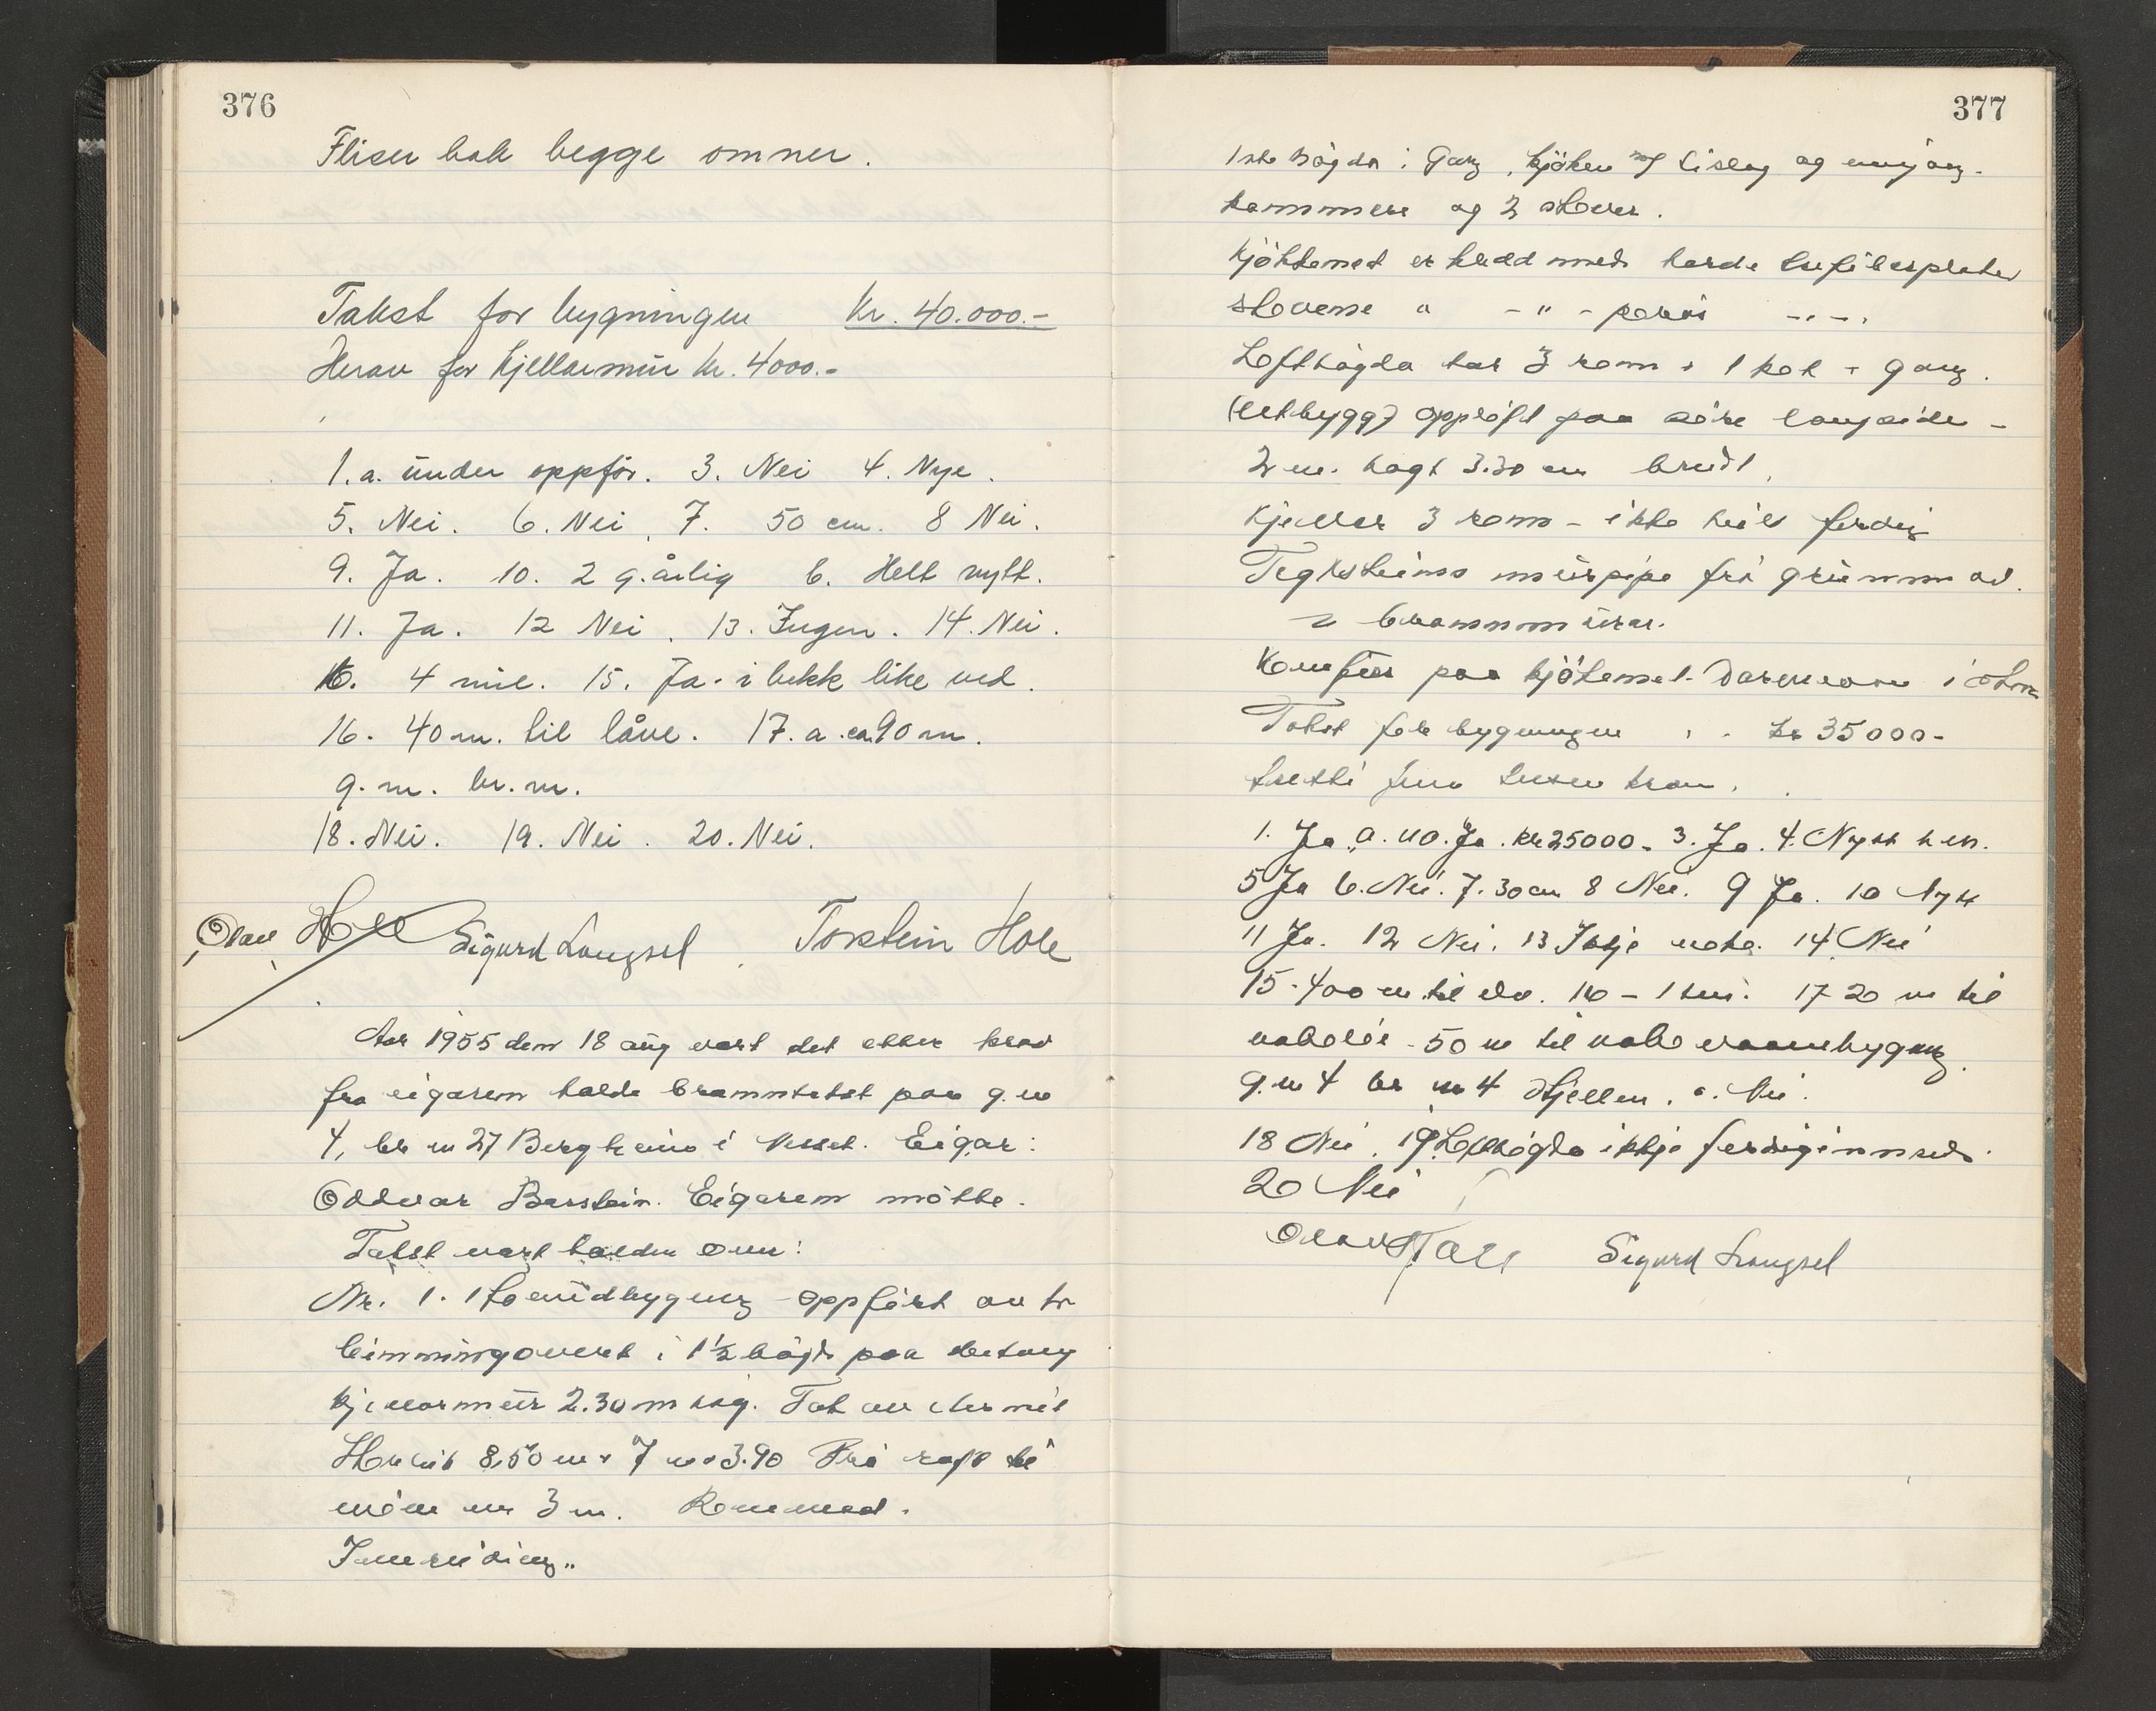 376
Fliser bak begge omner.
Takst for bygningen Kr. 40.000.-
Herav for kjellarmur kr. 4000.-
1.a. under oppför. 3. Nei 4. Nye.
5. Nei. 6. Nei. 7. 50 cm. 8 Nei.
9. Ja. 10. 2 g. årlig b. Helt nytt.
11. Ja. 12 Nei. 13. Ingen. 14. Nei.
16. 4 mil. 15. Ja. i bekk like ved.
16. 40 m. til låve. 17. a. ca. 90 m.
g. nr. br. nr.
18. Nei. 19. Nei. 20. Nei.
Olav Hole Sigurd Langsel Torstein Hole
Aar 1955 den 18 aug vart det etter krav
fra eigaren halde branntakst paa g. nr
4, br nr 27 Bergheim i Eigar:
Oddvar Eigaren mötte.
Takst vart halden over:
Nr. 1. oppfört av
bimmingverk i 1½ högd paa
kjellarmur 2.30 m hög. Tak av
8,50 m x 7 m x 3.90 Frå raft til
möne er 3 m.
Innreiding..
377
1ste högda: Gang, kjöken og
kammers og 2 stover.
Kjökenet er kledd med harde trefiberplater
stovene " - " - porös - " - .
Lofthögda har 3 rom + 1 kot + gang.
(Utbygg) opplöft paa söre langside -
2 m. högt 3.30 m breidt.
Kjeller 3 rom - ikke heilt ferdig
Teglsteins murpipe frå grunnen av.
2 brannmurar.
Komfur paa kjökenet.
Takst for bygningen . . kr 35000-
tretti fem tusen kron.
1. Ja. a. Ja. kr 25000. 3. Ja. 4. Nytt
5 Ja 6. Nei. 7. 30 cm 8 Nei. 9 Ja. 10 Nytt
11 Ja. 12 Nei. 13 Ikkje 14 Nei
15. 400 m til elv. 16 - 17 20 m til
50 m til nabo
g. nr 4 br nr 4 Hjellen. a. Nei.
18 Nei. 19 Lofthögda ikkje ferdiginnreid.
20 Nei
Olav Hole Sigurd Langsel